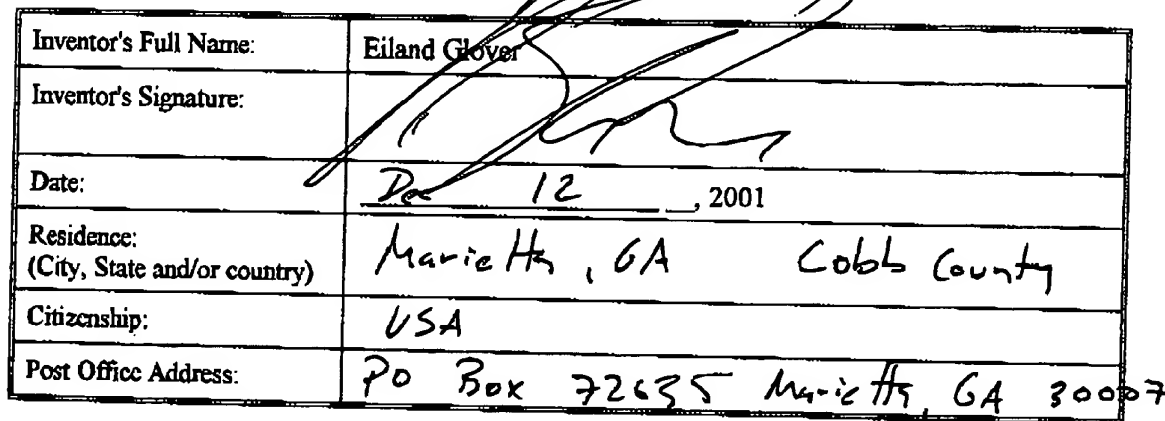 Inventor's Full Name: Eiland Glover
Inventor's Signature:
Date: Dec 12, 2001
Residence: Marietta, GA Cobb County
(City, State and/or country)
Citizenship: USA
Post Office Address: PO Box 72635 Marietta, GA 30007